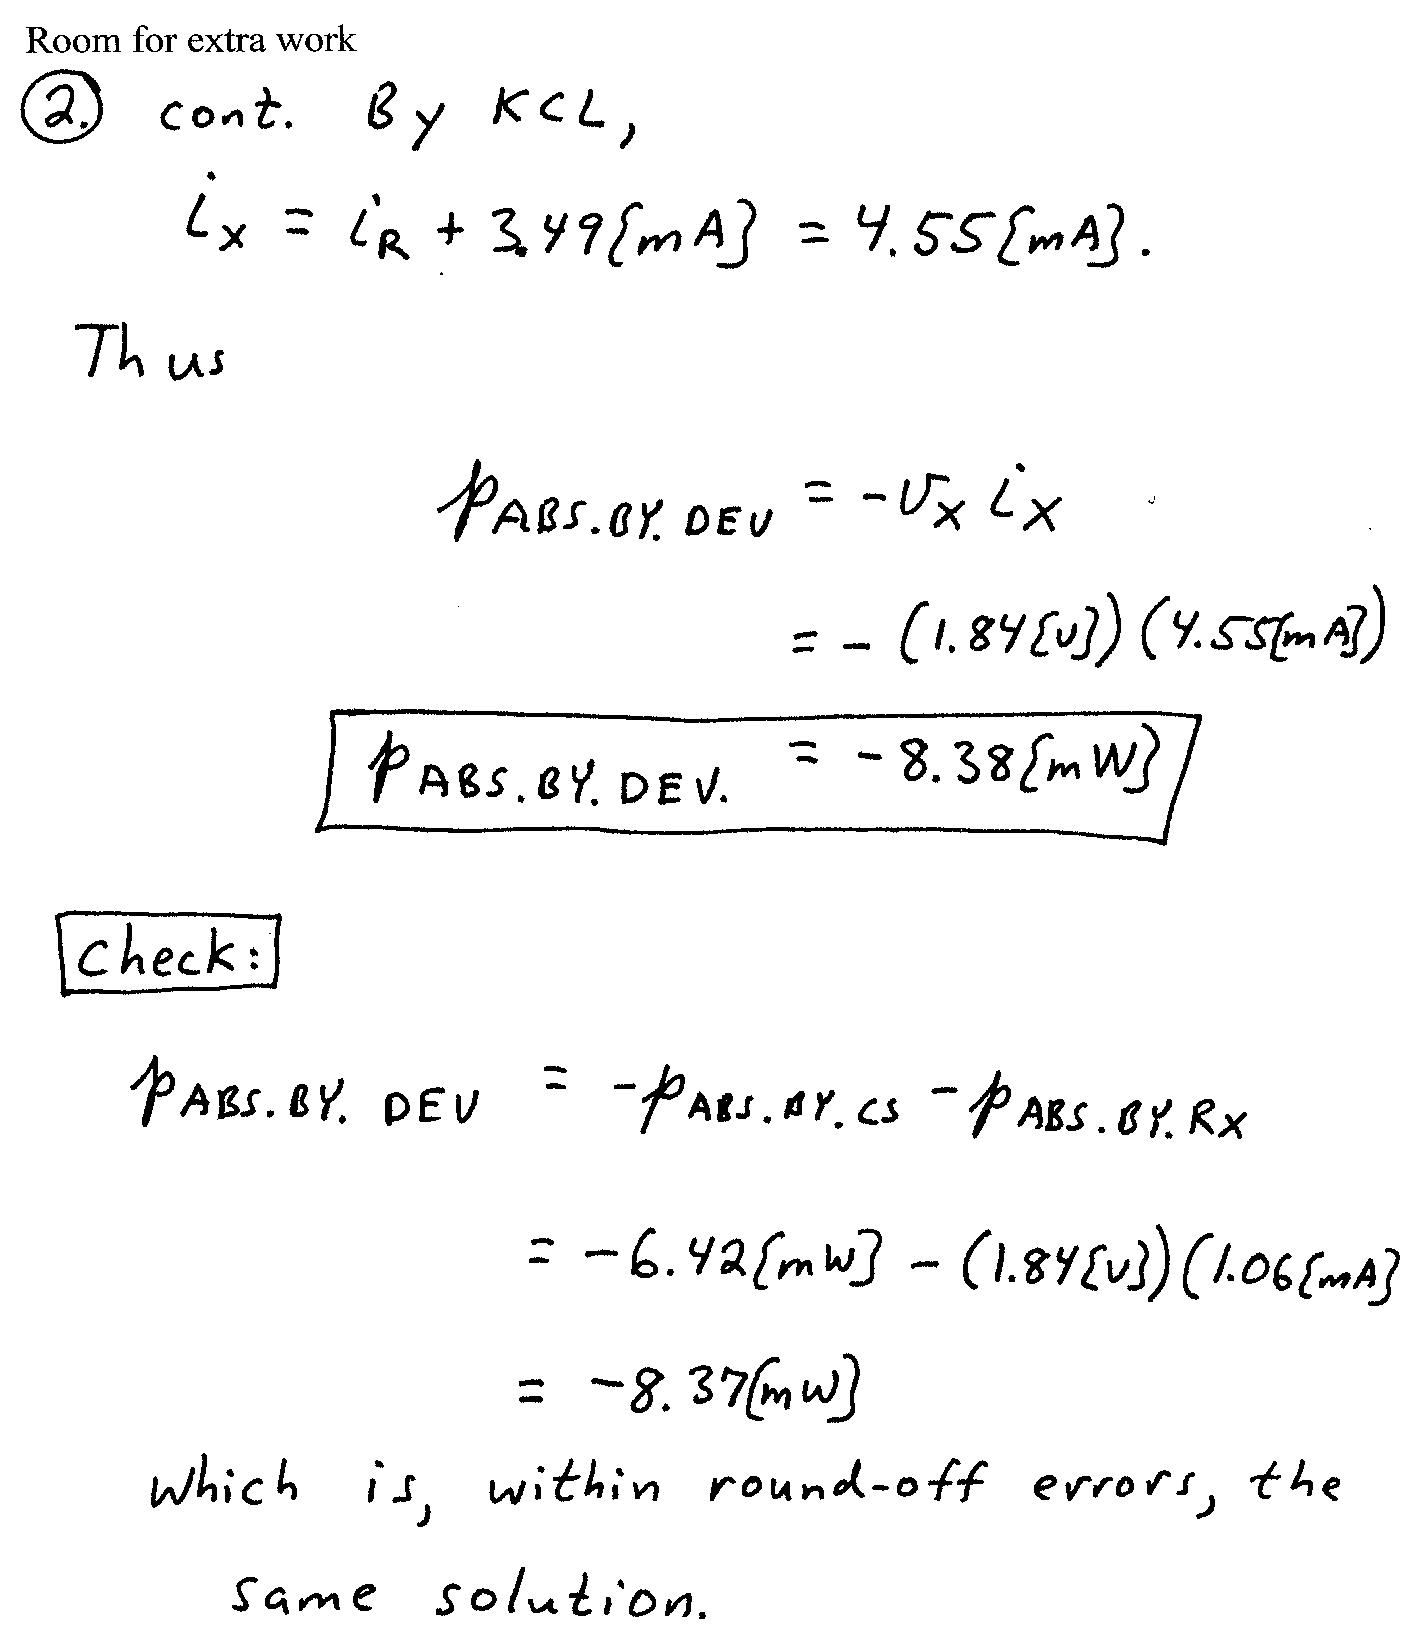 Room for extra work
2. cont. By KCL,
iX = iR + 3.49[mA] = 4.55[mA].
Thus
PABS.BY. DEV = -vX iX
= -(1.84[v])(4.55[mA])
PABS.BY. DEV. = -8.38[mW]
Check:
PABS.BY. DEV = -PABS.BY.CS -PABS.BY.RX
= -6.42[mW] - (1.84[v])(1.06[mA]
= -8.37[mW]
which is, within round-off errors, the
same solution.